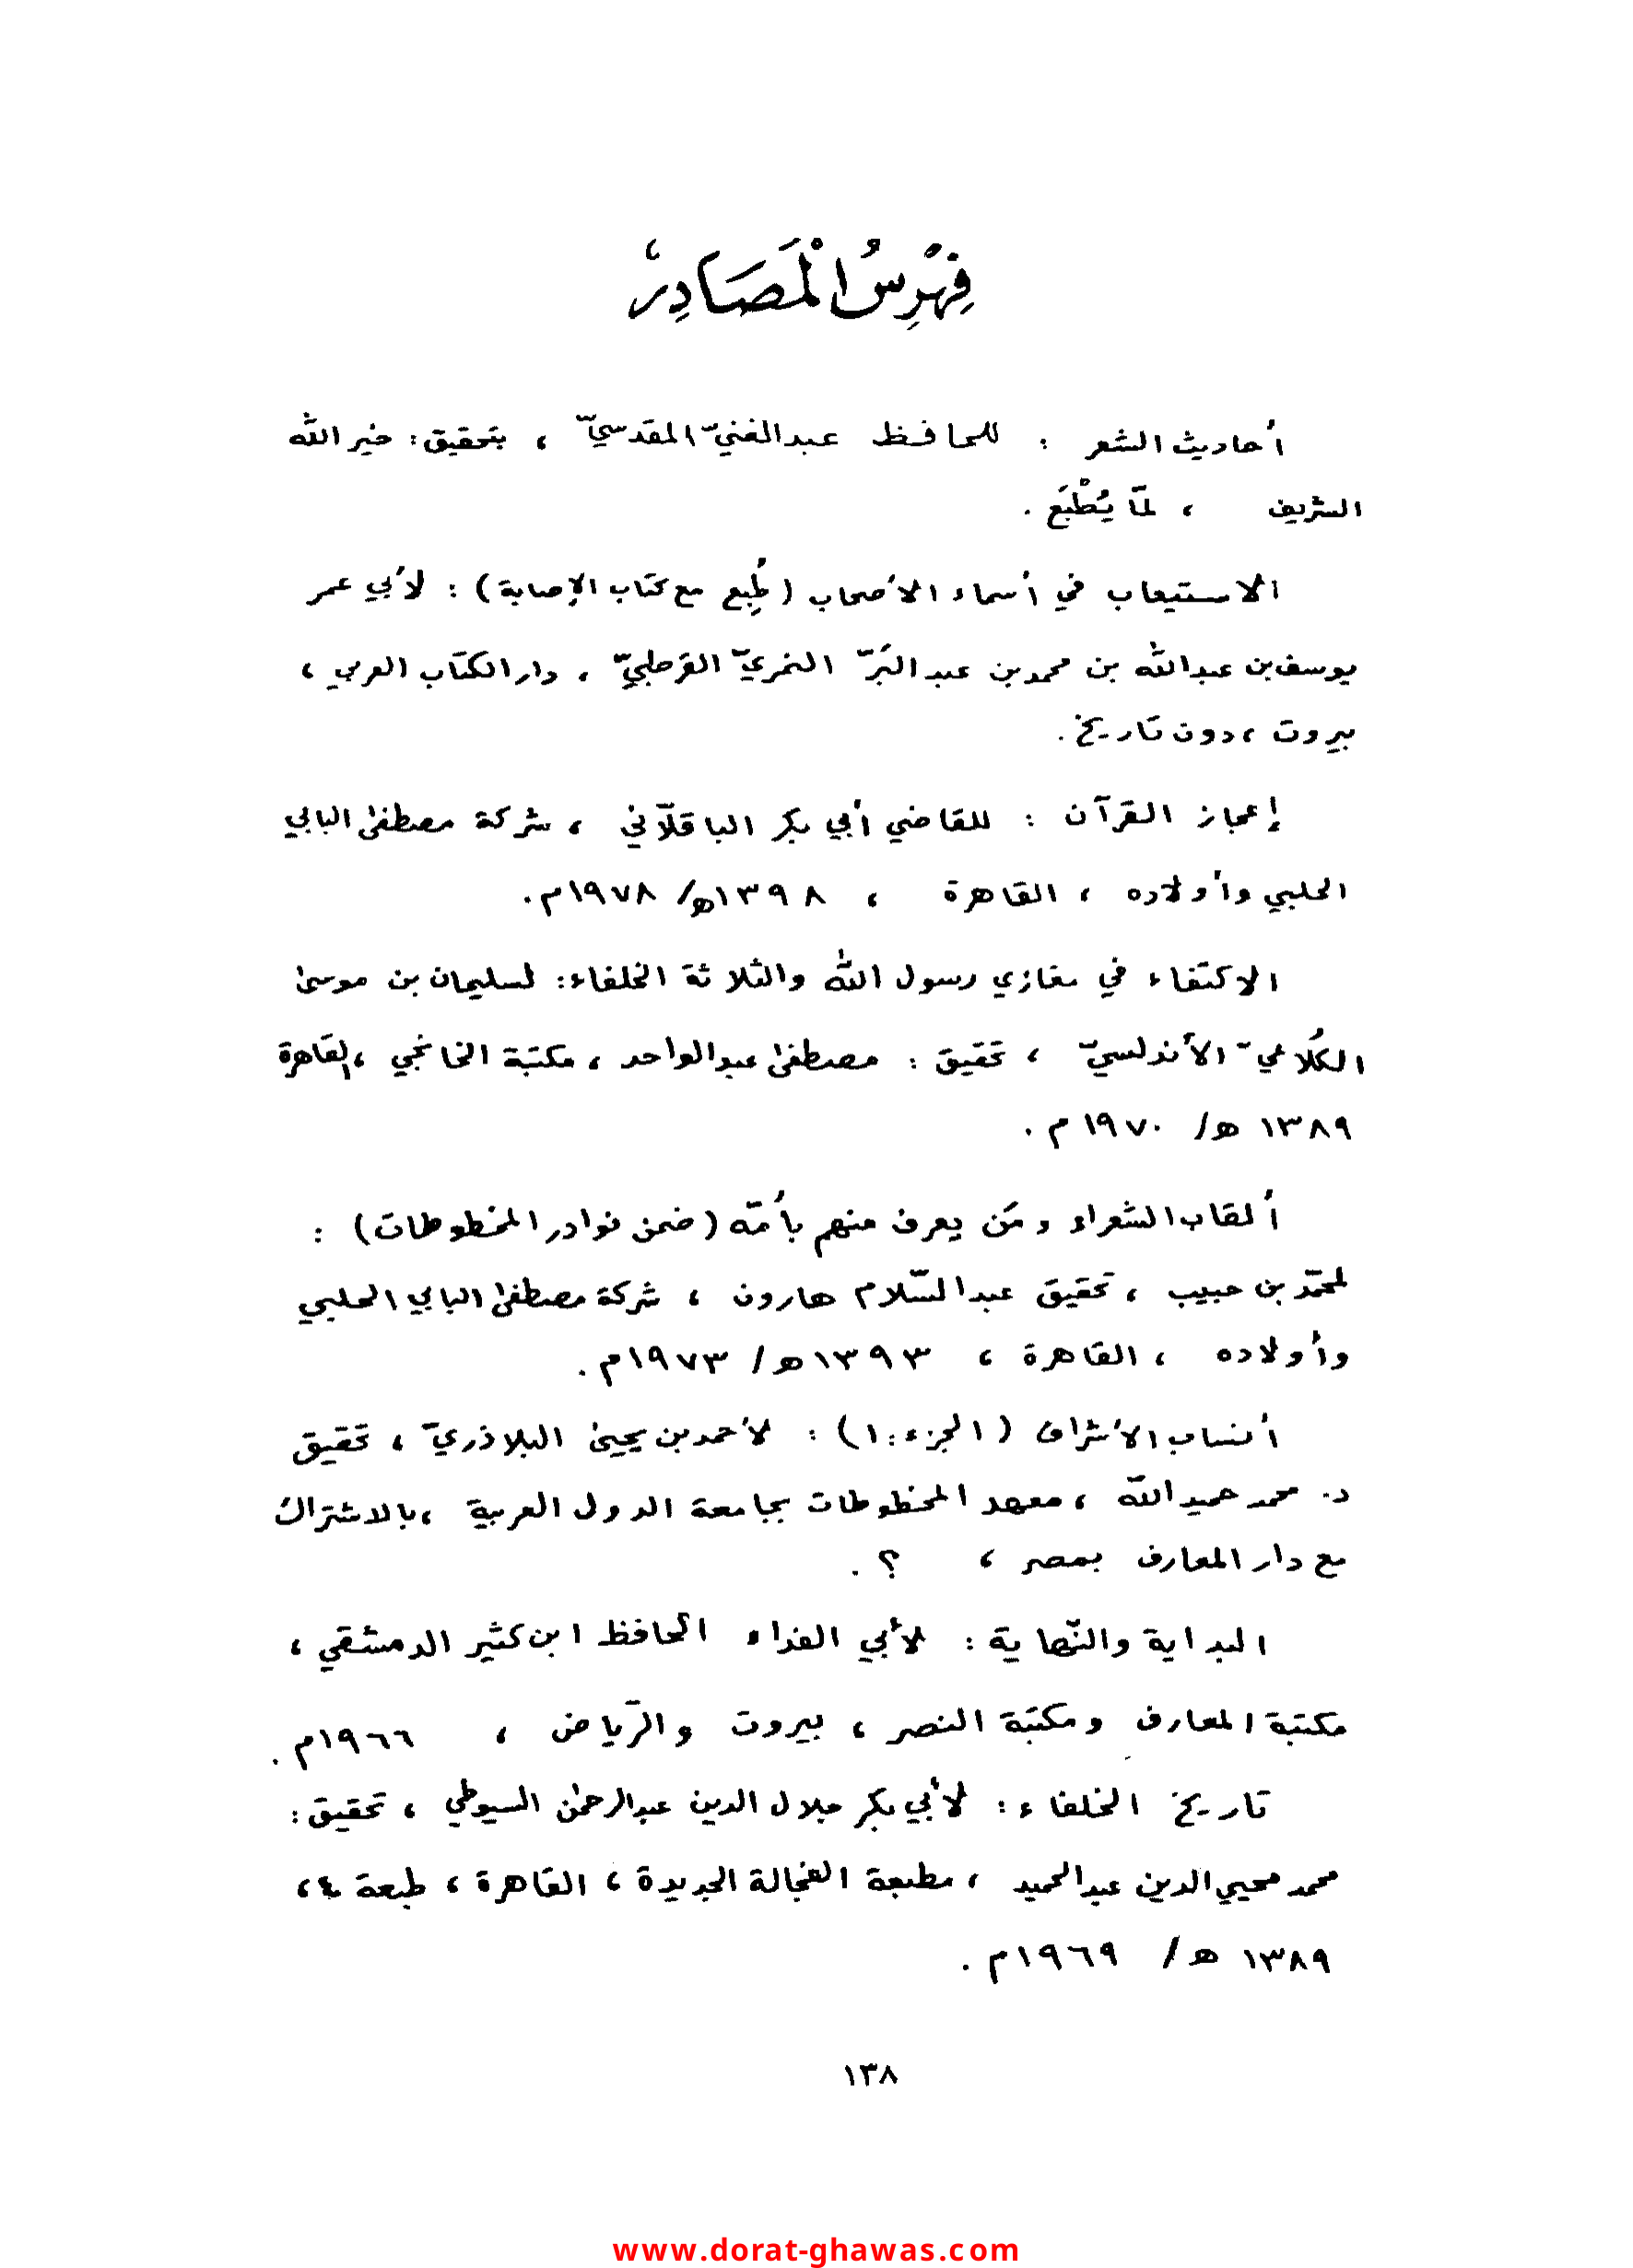 فِهْرِسُ الْمَصَادِرِ
أحاديث الشعر : للحافظ عبدالغنيّ المقدسيّ ، بتحقيق : خير الله
الشريف ، لمّا يُطْبَع .
الاستيعاب في أسماء الأصحاب ( طُبِع مع كتاب الإصابة ) : لأبي عمر
يوسف بن عبدالله بن محمد بن عبد البَرّ النمريّ القرطبيّ ، دار الكتاب العربي ،
بيروت ، دون تاريخ .
إعجاز القرآن : للقاضي أبي بكر الباقلّاني ، شركة مصطفىٰ البابي
الحلبي وأولاده ، القاهرة ، ١٣٩٨هـ/ ١٩٧٨م .
الاكتفاء في مغازي رسول الله والثلاثة الخلفاء : لسليمان بن موسىٰ
الكُلاعيّ الأندلسيّ ، تحقيق : مصطفىٰ عبدالواحد ، مكتبة الخانجي ، القاهرة
١٣٨٩ هـ/ ١٩٧٠ م .
ألقاب الشعراء ومَن يعرف منهم بأُمّه ( ضمن نوادر المخطوطات ) :
لمحمّد بن حبيب ، تحقيق عبد السّلام هارون ، شركة مصطفىٰ البابي الحلبي
وأولاده ، القاهرة ، ١٣٩٣هـ/ ١٩٧٣م .
أنساب الأشراف ( الجزء : ١ ) : لأحمد بن يحيىٰ البلاذريّ ، تحقيق
د. محمد حميد الله ، معهد المخطوطات بجامعة الدول العربية ، بالاشتراك
مع دار المعارف بمصر ، ؟ .
البداية والنّهاية : لأبي الفداء الحافظ ابن كثير الدمشقي ،
مكتبة المعارف ومكتبة النصر ، بيروت والرّياض ، ١٩٦٦م .
تاريخ الخلفاء : لأبي بكر جلال الدين عبدالرحمٰن السيوطي ، تحقيق :
محمد محيي الدين عبدالحميد ، مطبعة الفجالة الجديدة ، القاهرة ، طبعة ٤ ،
١٣٨٩ هـ/ ١٩٦٩م .
١٣٨
www.dorat-ghawas.com